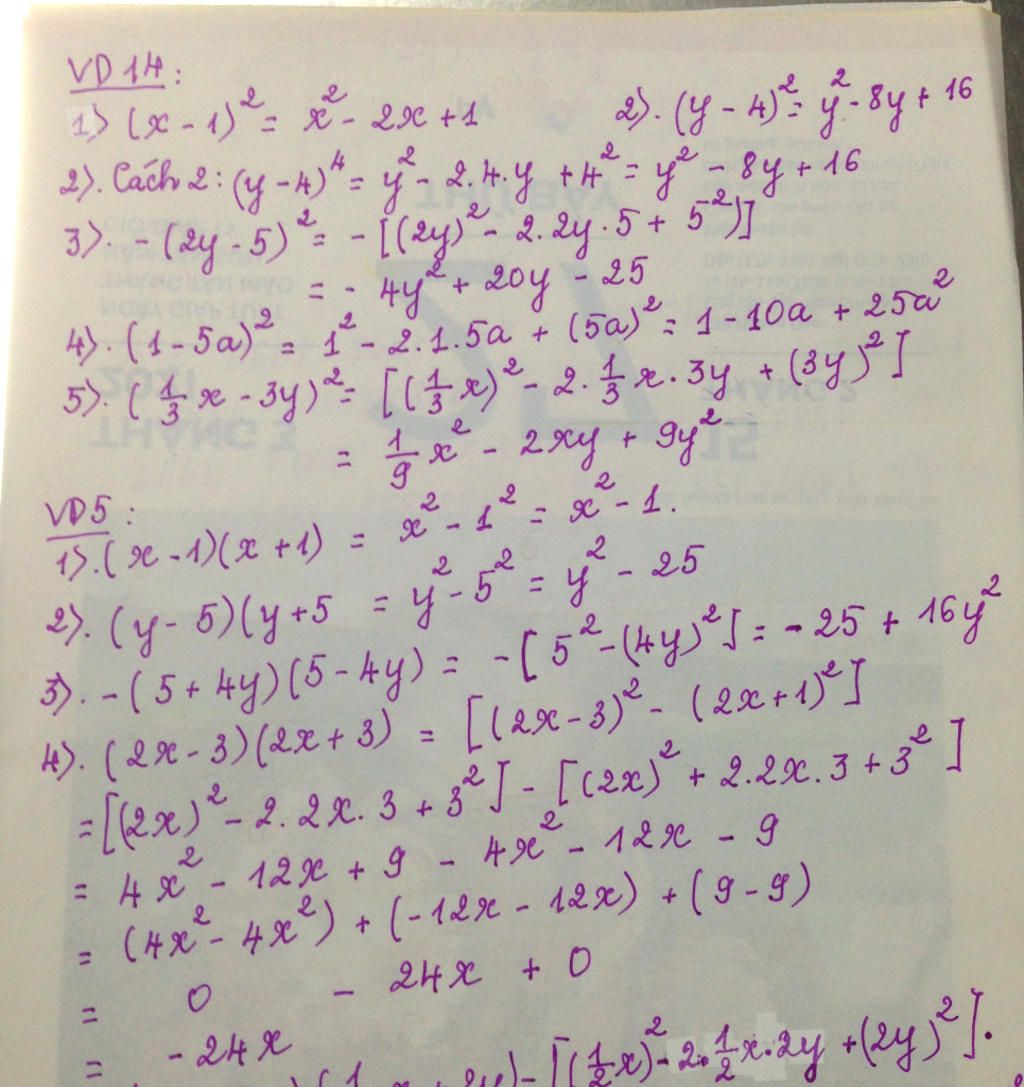 VD14:
1) (x - 1)² = x² - 2x + 1 2). (y - 4)² = y² - 8y + 16
2). Cách 2: (y - 4)⁴ = y² - 2.4.y + 4² = y² - 8y + 16
3). - (2y - 5)² = - [(2y)² - 2.2y.5 + 5²)]
= - 4y² + 20y - 25
4). (1 - 5a)² = 1² - 2.1.5a + (5a)² = 1 - 10a + 25a²
5). (1/3 x - 3y)² = [(1/3 x)² - 2. 1/3 x. 3y + (3y)²]
= 1/9 x² - 2xy + 9y²
VD5:
1). (x - 1)(x + 1) = x² - 1² = x² - 1.
2). (y - 5)(y + 5 = y² - 5² = y² - 25
3). - (5 + 4y)(5 - 4y) = - [5² - (4y)²] = - 25 + 16y²
4). (2x - 3)(2x + 3) = [(2x - 3)² - (2x + 1)²]
= [(2x)² - 2.2x.3 + 3²] - [(2x)² + 2.2x.3 + 3²]
= 4x² - 12x + 9 - 4x² - 12x - 9
= (4x² - 4x²) + (-12x - 12x) + (9 - 9)
= 0 - 24x + 0
= - 24x
[(1/2 x)² - 2. 1/2 x. 2y + (2y)²].